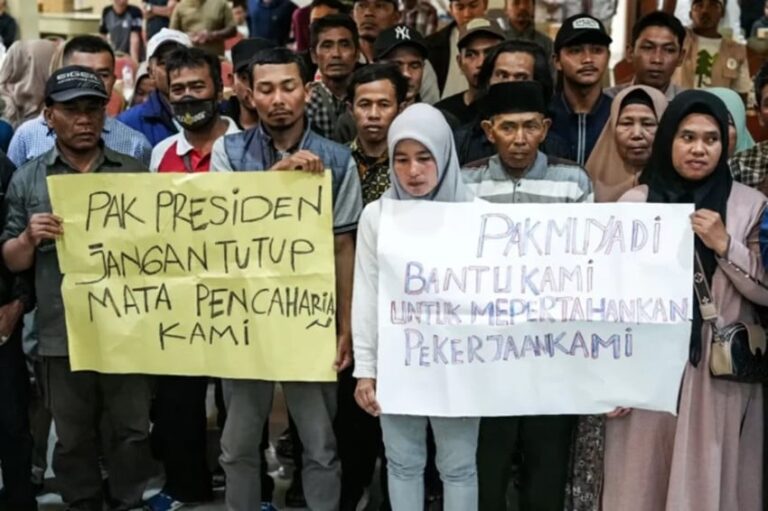 EIGER
PAK PRESIDEN
JANGAN TUTUP
MATA PENCAHARIA
KAMI
PAK MULYADI
BANTU KAMI
UNTUK MEPERTAHANKAN
PEKERJAAN KAMI